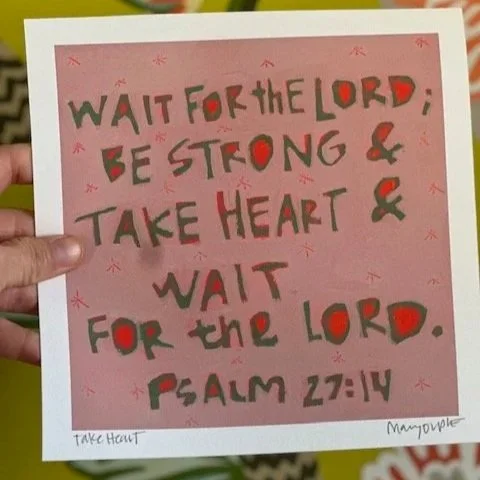 WAIT FOR thE LORD;
BE STRONG &
TAKE HEART &
WAIT
FOR the LORD.
PSALM 27:14
take Heart